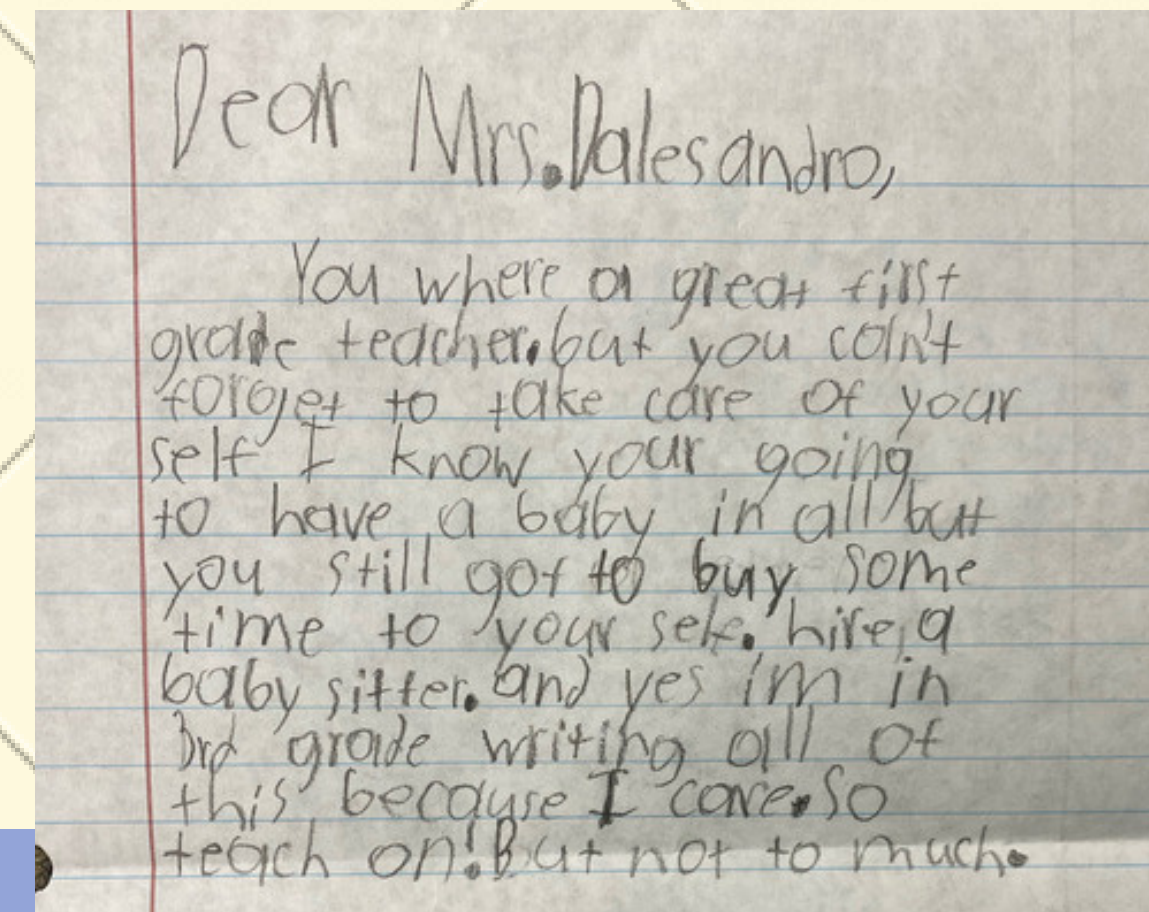 Dear Mrs. Dalesandro,
You where a great first
grade teacher. but you can't
forget to take care of your
self I know your going
to have a baby in all but
you still got to buy some
time to your self. hire a
baby sitter. and yes im in
3rd grade writing all of
this because I care. So
teach on! But not to much.